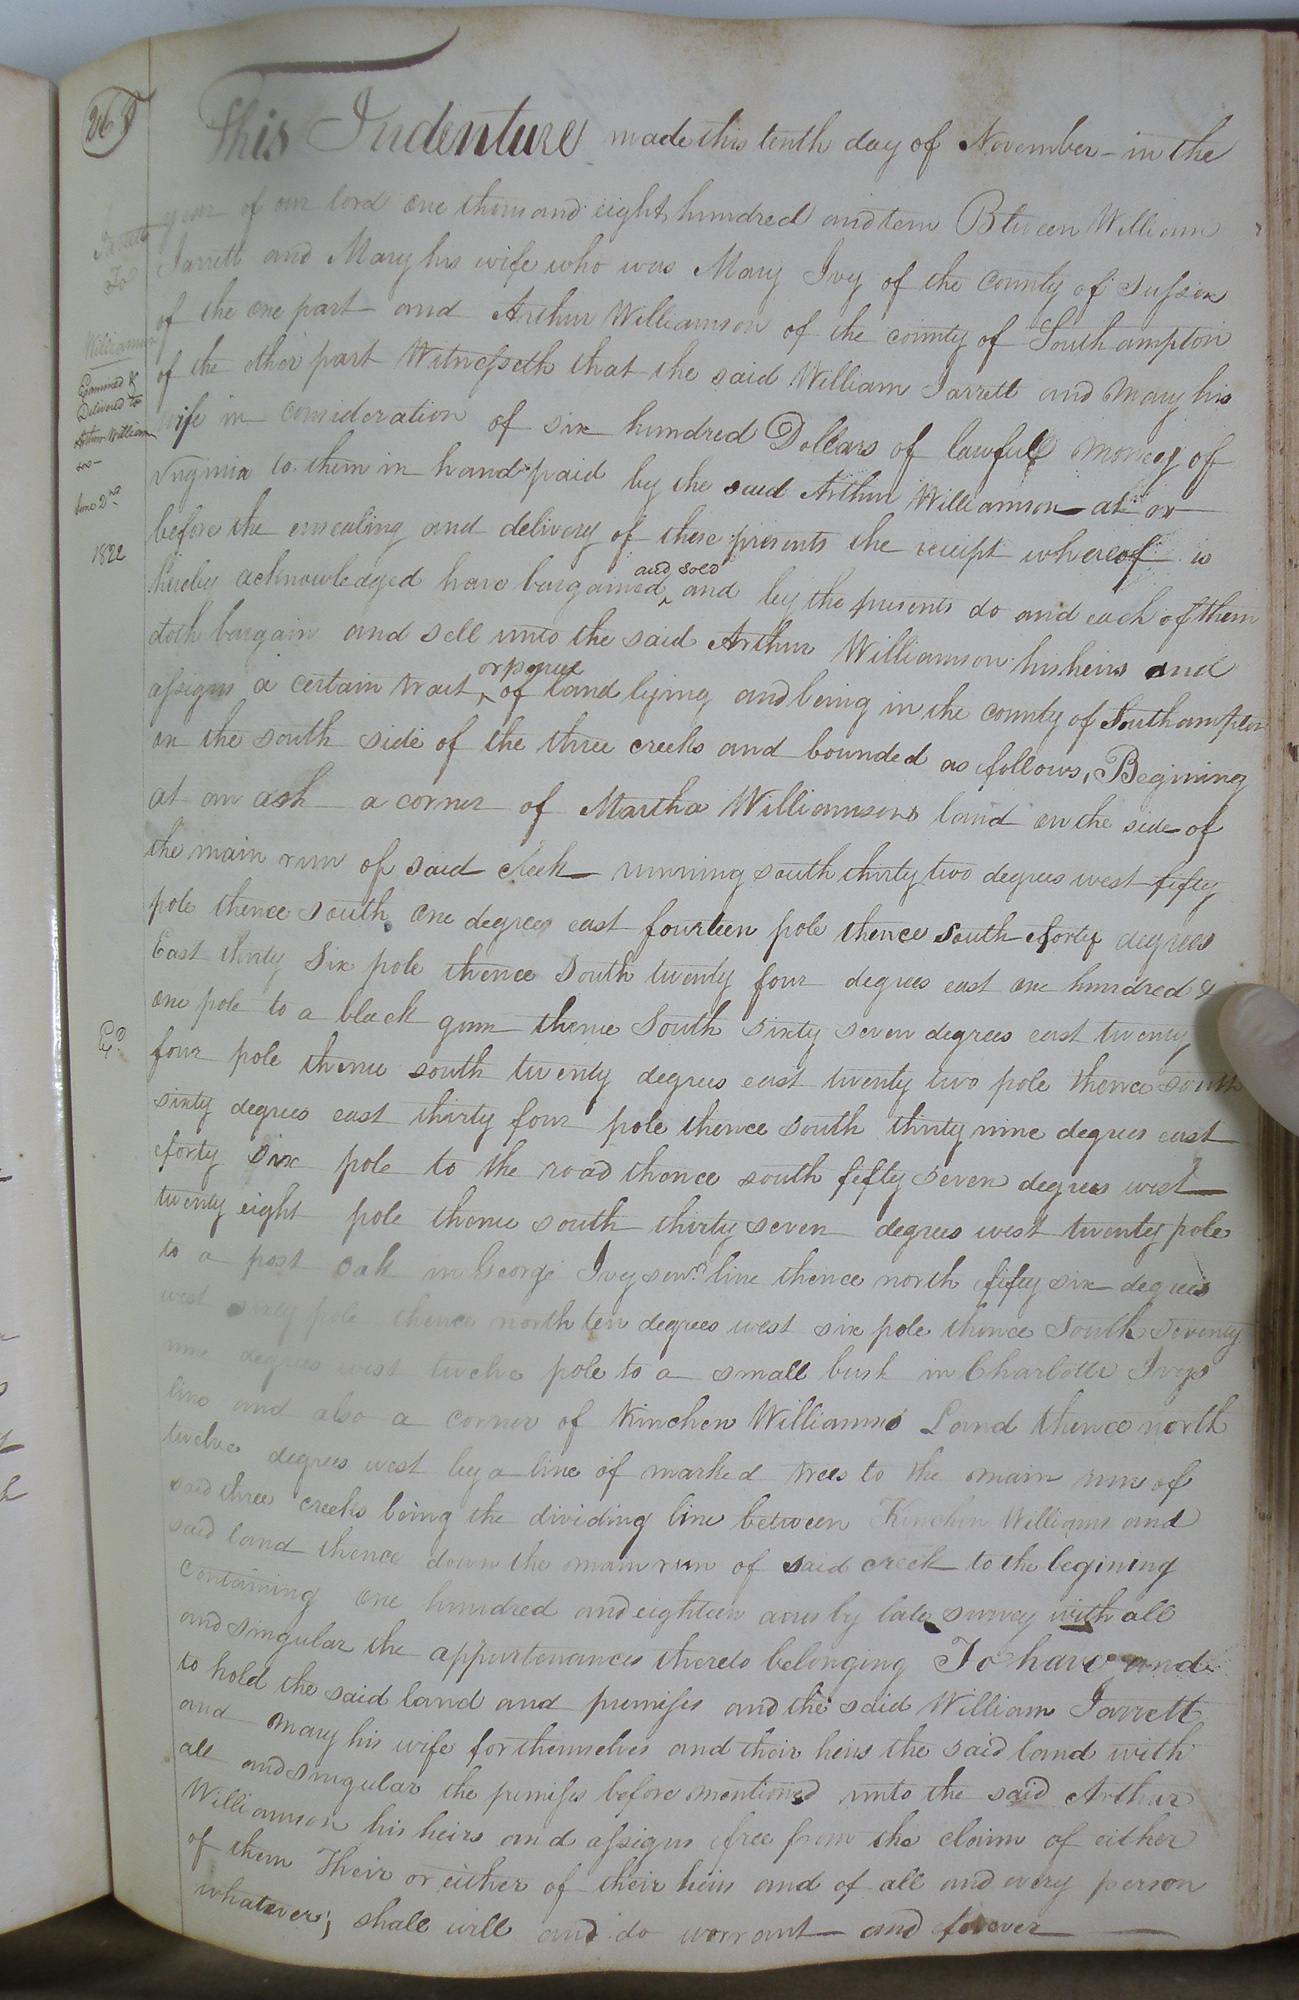 This Indenture made this tenth day of November - in the
year of our lord one thousand eight hundred and tenn Btween William
Jarrett and Mary his wife who was Mary Ivy of the County of Sussex
of the one part and Arthur Williamson of the county of Southampton
of the other part Witnesseth that the said William Jarrett and Mary his
wife in consideration of six hundred Dollars of lawfull money of
Virginia to them in hand paid by the said Arthur Williamson at or
before the ensealing and delivery of these presents the receipt whereof is
hereby acknowledged have bargained and sold and by the presents do and each of them
doth bargain and sell unto the said Arthur Williamson his heirs and
assigns a certain tract or parcel of land lying and being in the county of Southampton
on the south side of the three creeks and bounded as follows, Begining
at an ash a corner of Martha Williamsons land on the side of
the main run of said creek running south thirty two degrees west fifty
pole thence south one degrees east fourteen pole thence south forty degrees
East thirty Six pole thence South twenty four degrees east one hundred &
one pole to a black gum thence South Sixty seven degrees east twenty
four pole thence south twenty degrees east twenty two pole thence south
sixty degrees east thirty four pole thence south thirty nine degrees east
forty six pole to the road thence south fifty seven degrees west
twenty eight pole thence south thirty seven degrees west twenty pole
to a post oak in George Ivy senr. line thence north fifty six degrees
west sixty pole thence north ten degrees west six pole thence South Seventy
nine degrees west twelve pole to a small bush in Charlotte Ivys
line and also a corner of Kinchen Williams Land thence north
twelve degrees west by a line of marked trees to the main run of
said three creeks being the dividing line between Kinchen Williams and
said land thence down the main run of said creek to the begining
Containing one hundred and eighteen acres by late survey with all
and singular the appurtenances thereto belonging To have and
to hold the said land and premises and the said William Jarrett
and Mary his wife for themselves and their heirs the said land with
all and singular the premises before mentioned unto the said Arthur
Williamson his heirs and assigns free from the claim of either
of them Their or either of their heirs and of all and every person
whatever; shall will and do warrant and forever
Jarrett
To
Williamson
Examined &
Delivered to
Arthur William
son
June 2nd
1822